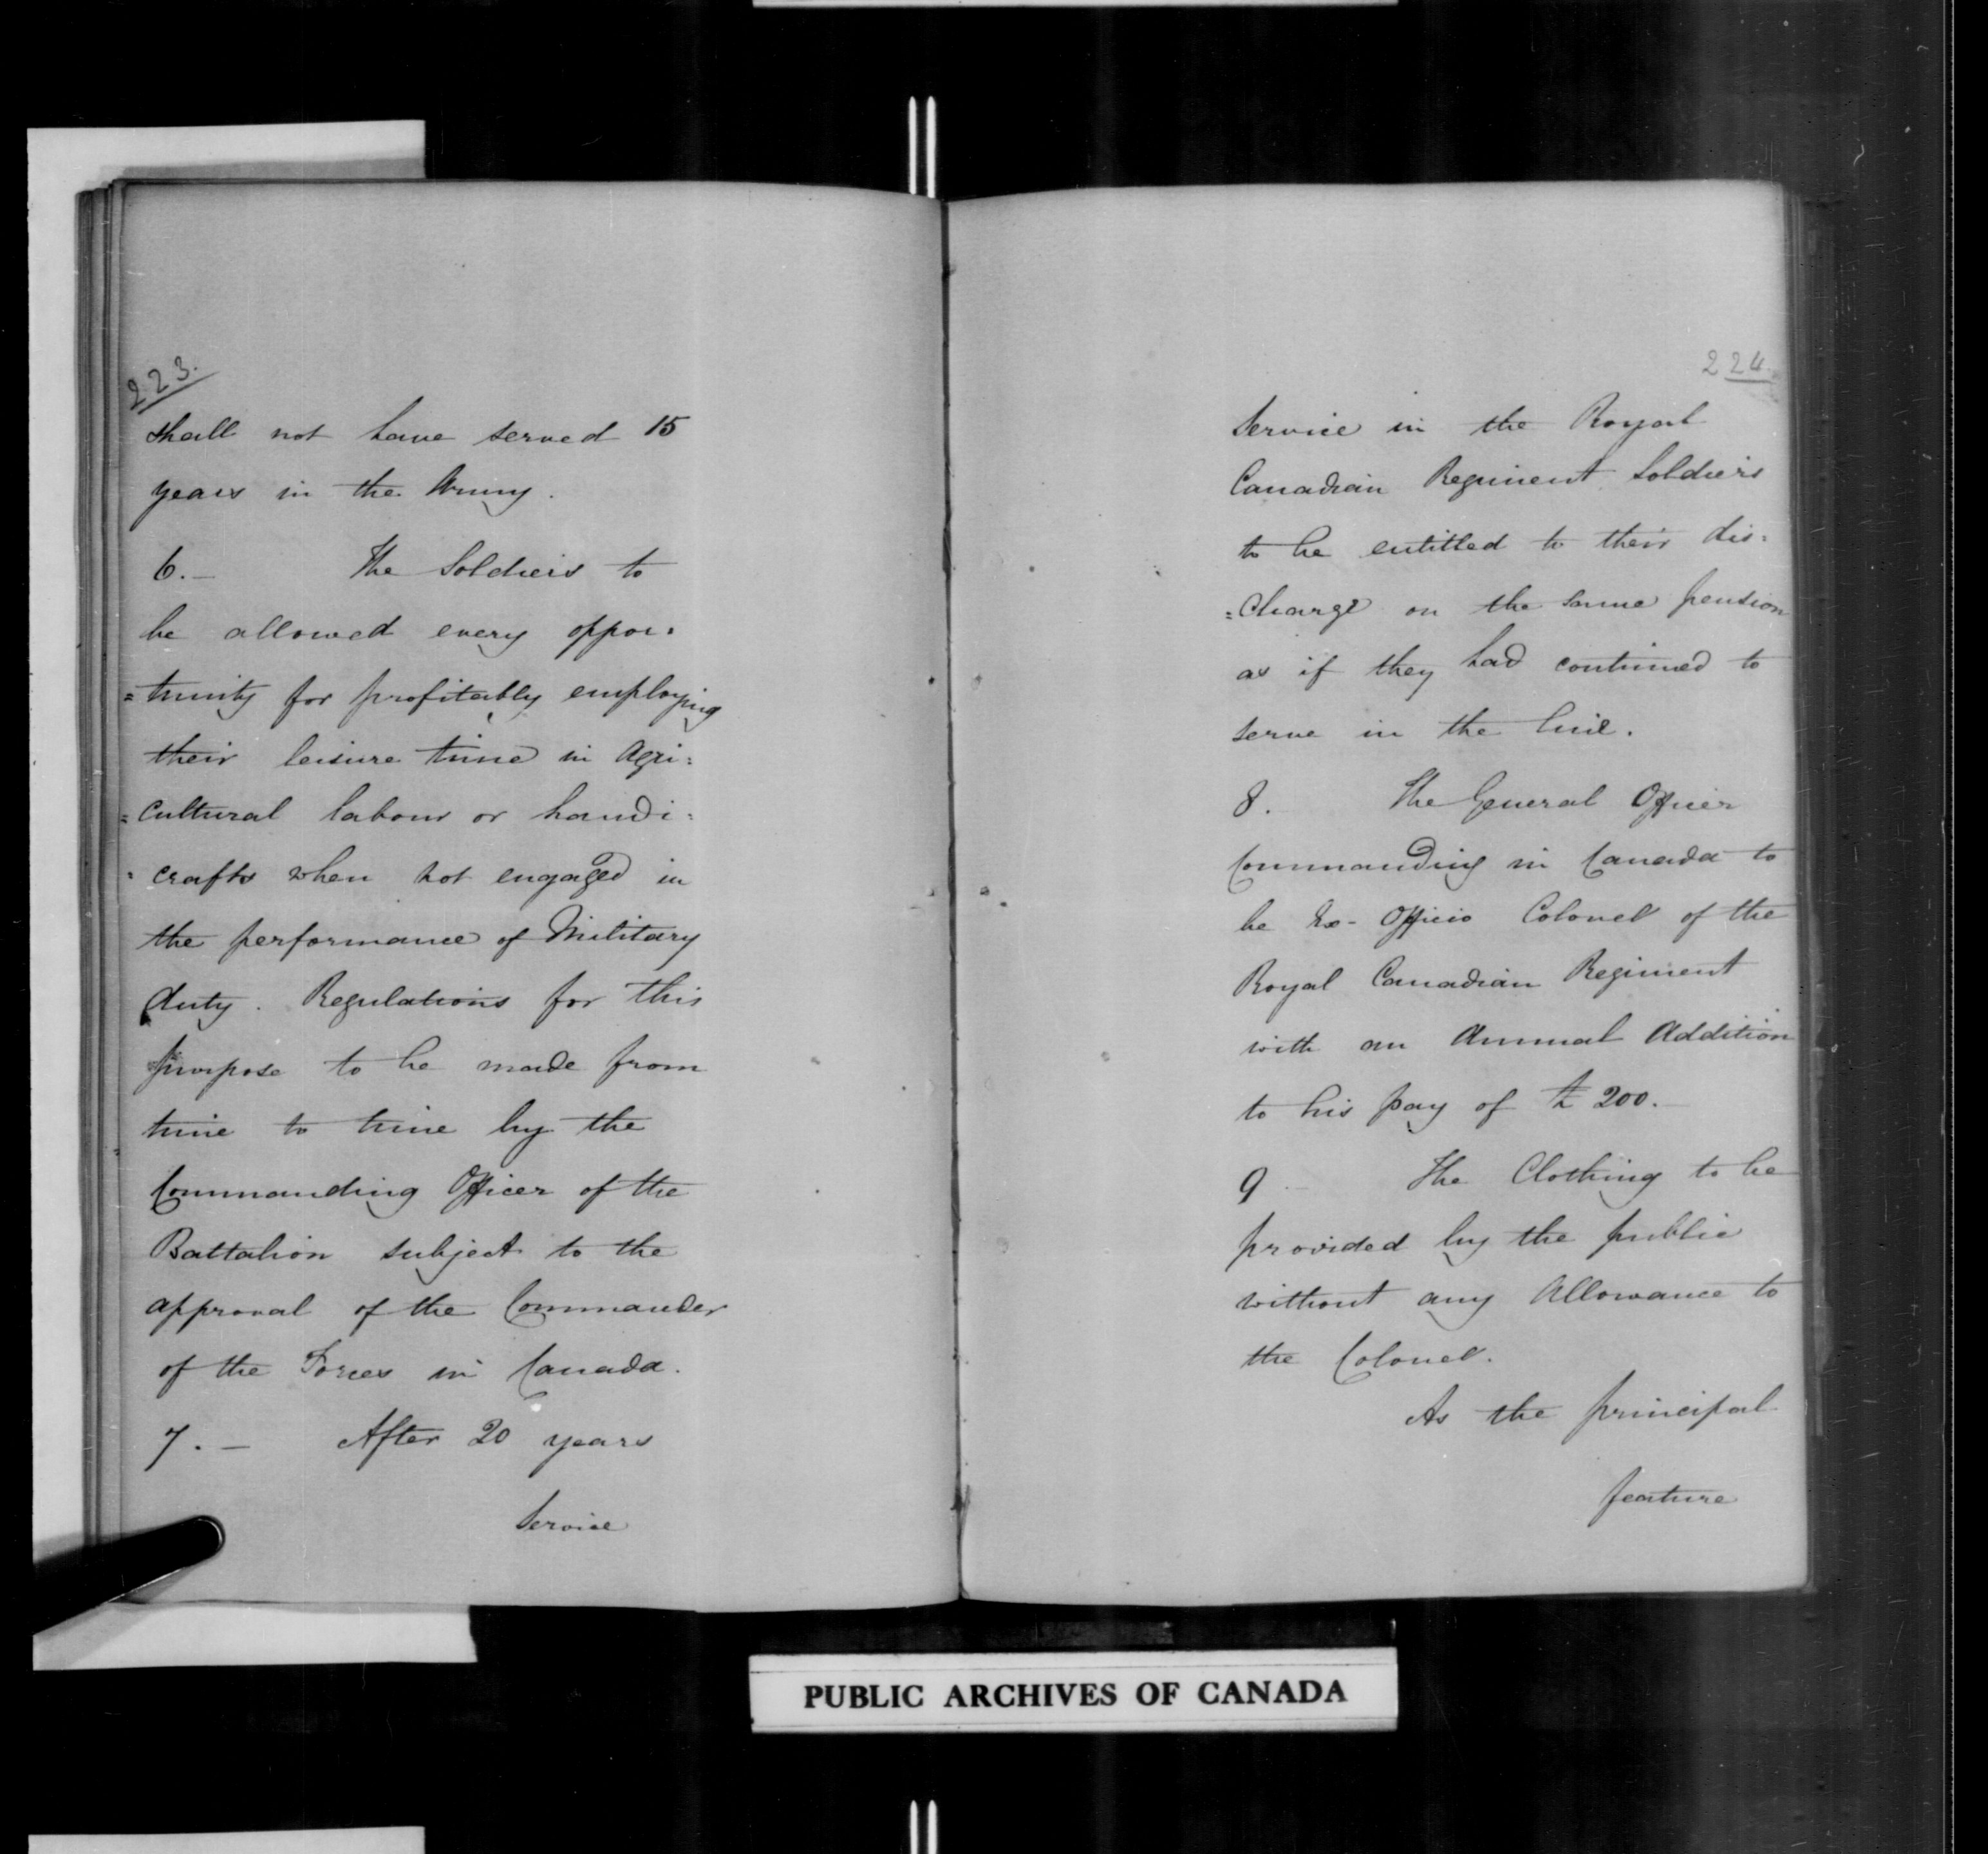 223.
shall not have served 15
years in the Army.
6.— The Soldiers to
be allowed every oppor=
=tunity for profitably employing
their leisure time in Agri=
=cultural labour or handi=
=crafts when not engaged in
the performance of Military
duty. Regulations for this
purpose to be made from
time to time by the
Commanding Officer of the
Battalion subject to the
approval of the Commander
of the Forces in Canada.
7.— After 20 years
Service
224.
Service in the Royal
Canadian Regiment Soldiers
to be entitled to their dis=
=charge on the same pension
as if they had continued to
serve in the line.
8. The General Officer
Commanding in Canada to
be Ex-Officio Colonel of the
Royal Canadian Regiment
with an Annual Addition
to his pay of £200.
9 — The Clothing to be
provided by the public
without any Allowance to
the Colonel.
As the principal
feature
PUBLIC ARCHIVES OF CANADA